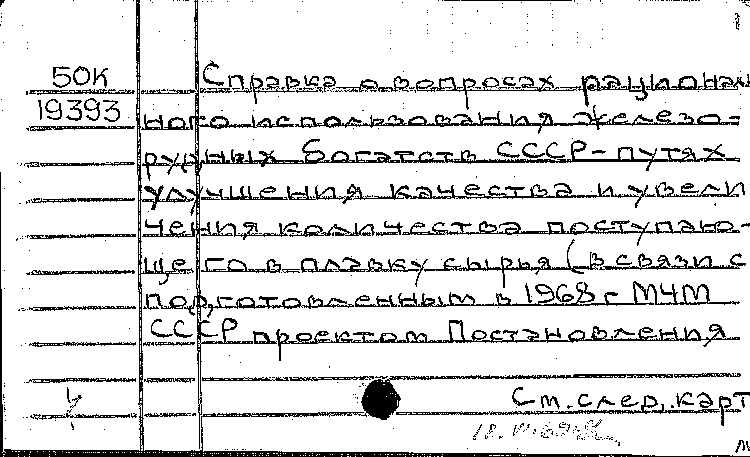 50К Справка о вопросах рационал
19393 ного использования железо-
рудных богатств СССР-путях
улучшения качества и увели
чения количества поступаю-
щего в плавку сырья (в связи с
подготовленным в 1968 г МЧМ
СССР проектом Постановления
См. след. карт